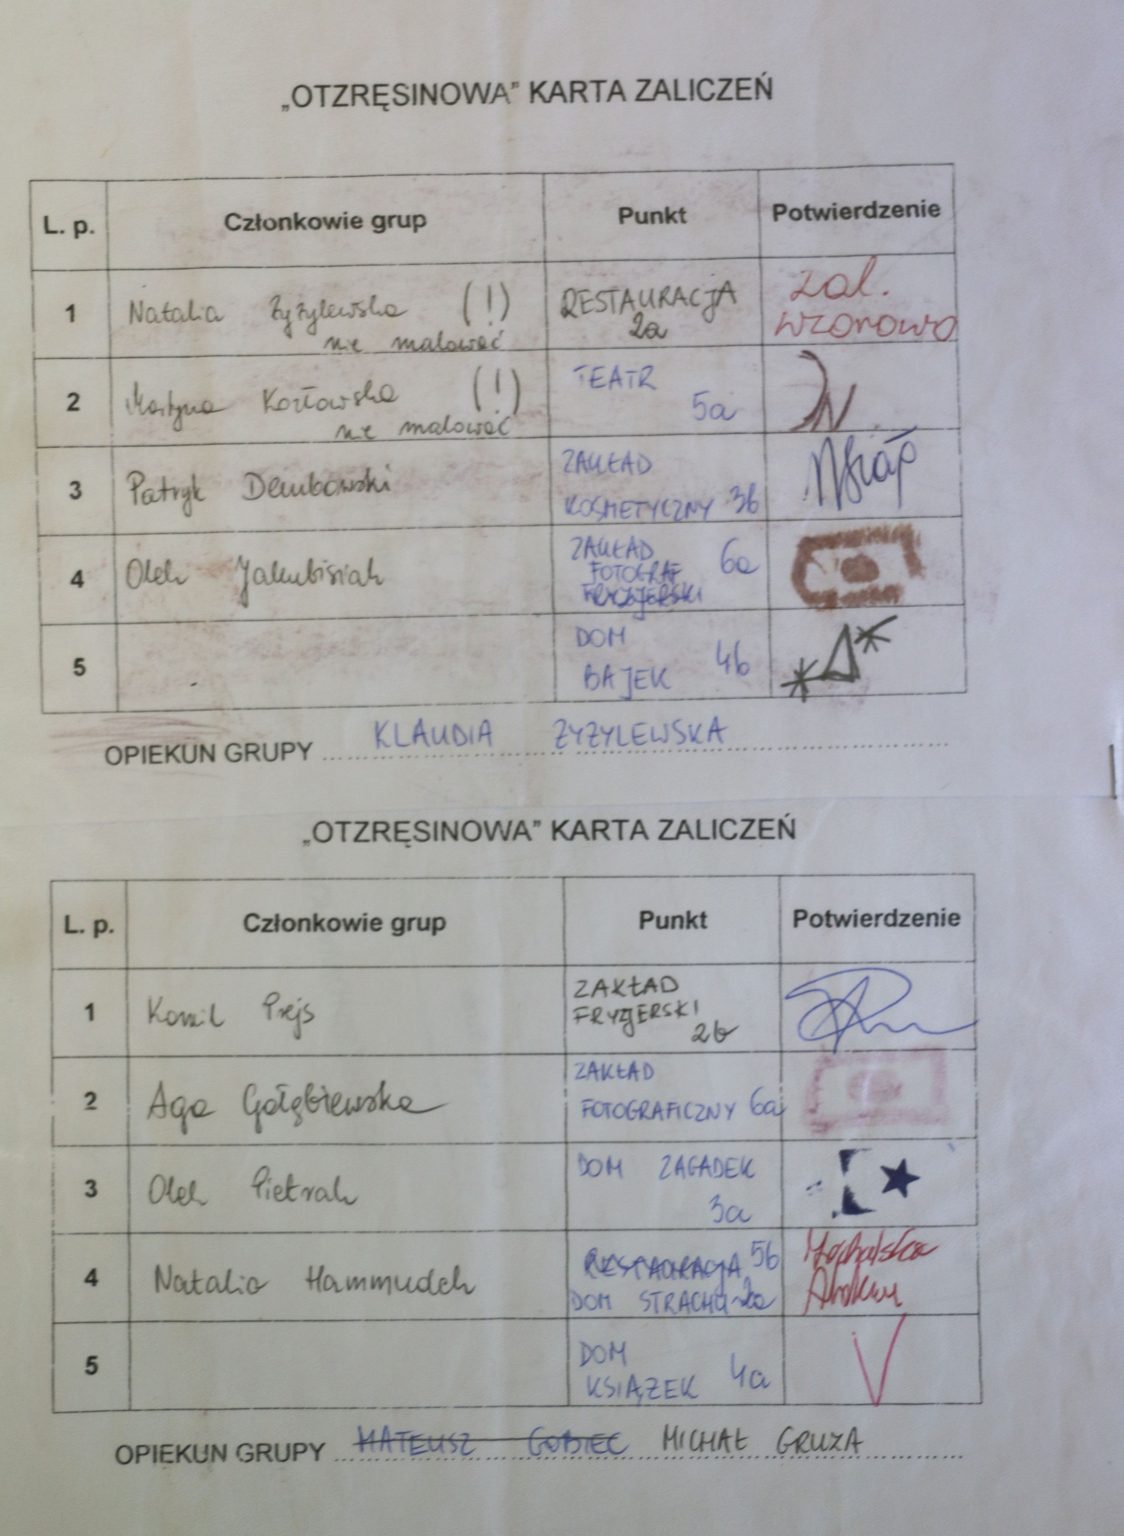 „OTZRĘSINOWA” KARTA ZALICZEŃ
L. p. Członkowie grup Punkt Potwierdzenie
1 Natalia Zyzylewska (!) RESTAURACJA zal.
nie malować 2a wzorowo
2 Martyna Kozłowska (!) TEATR
nie malować 5a
3 Patryk Dembowski ZAKŁAD
KOSMETYCZNY 3b
4 Olek Jakubisiak ZAKŁAD 6a
FOTOGRAF
FRYZJERSKI
5 DOM
BAJEK 4b
OPIEKUN GRUPY KLAUDIA ZYZYLEWSKA
„OTZRĘSINOWA” KARTA ZALICZEŃ
L. p. Członkowie grup Punkt Potwierdzenie
1 Kamil Prejs ZAKŁAD
FRYZJERSKI
2b
2 Aga Gołębiewska ZAKŁAD
FOTOGRAFICZNY 6a
3 Olek Pietrak DOM ZAGADEK
3a
4 Natalia Hammudeh RESTAURACJA 5b
DOM STRACHU 2a
5 DOM
KSIĄŻEK 4a
OPIEKUN GRUPY MATEUSZ GOBIEC MICHAŁ GRUZA